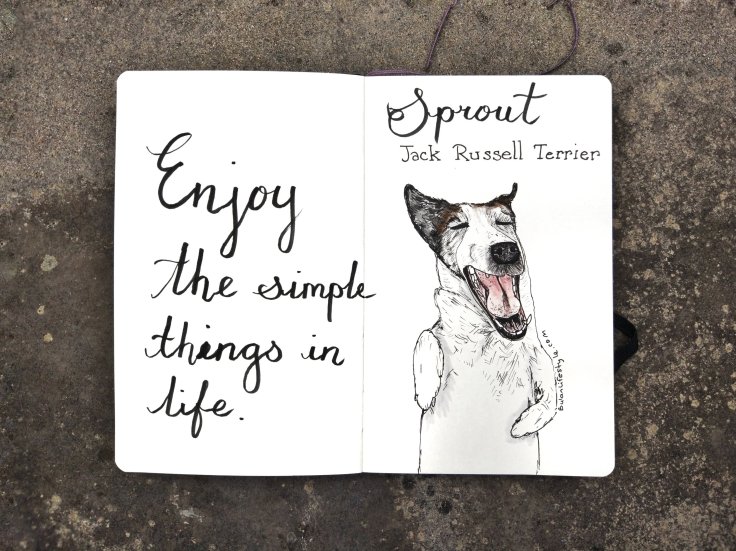 Enjoy
the simple
things in
life.
Sprout
Jack Russell Terrier